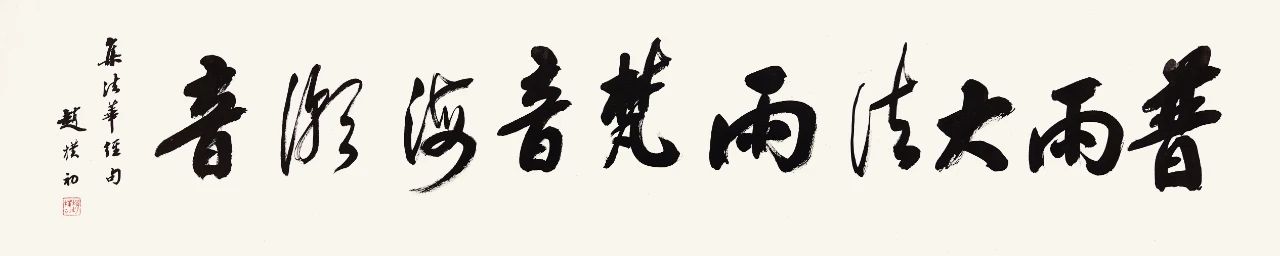 普雨大法雨梵音海潮音
集法華經句
趙樸初